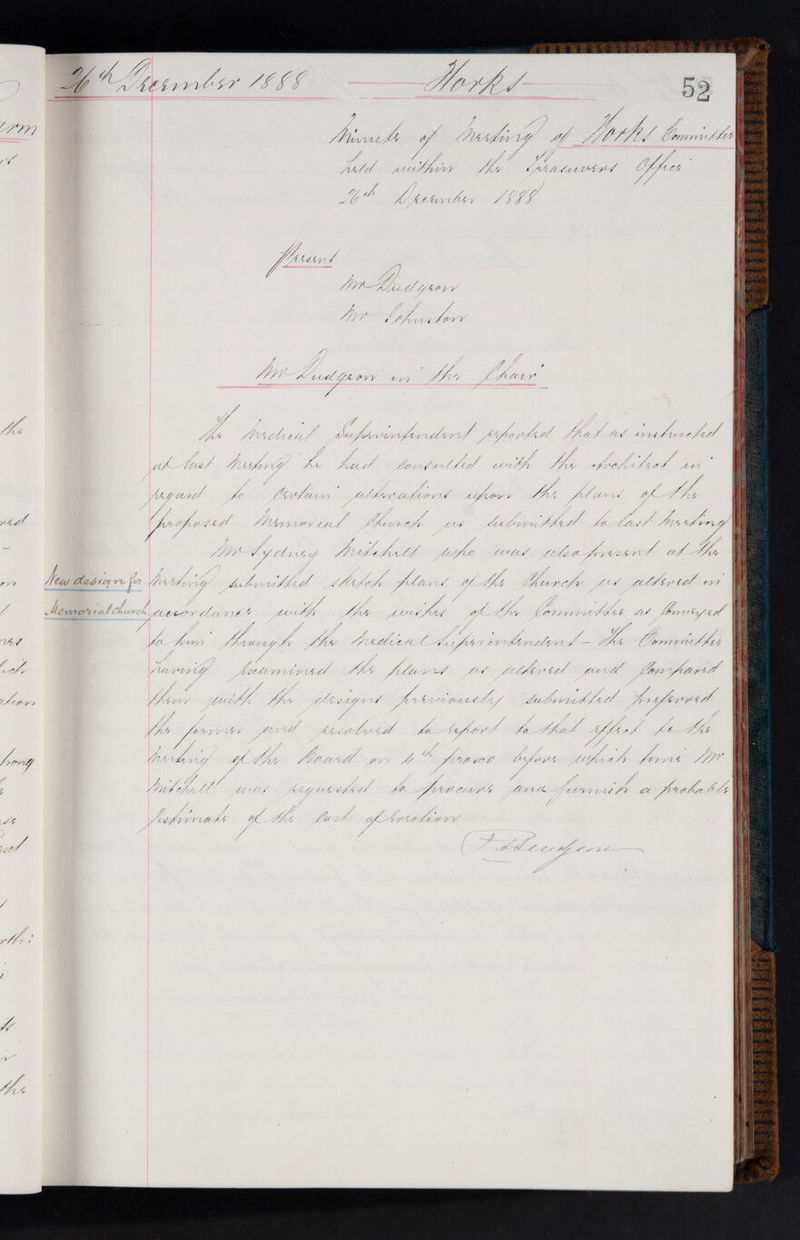 26th December 1888 Works 52
Minute of Meeting of Works Committee
held within the Treasurers Office
26th December 1888
Present
Mr Dudgeon
Mr Johnston
Mr Dudgeon in the Chair
The Medical Superintendent reported that as instructed
at last Meeting he had consulted with the Architect in
regard to certain alterations upon the plans of the
proposed Memorial Church as submitted to last Meeting
Mr Sydney Mitchell who was also present at the
New design for
Memorial Church
Meeting submitted sketch plans of the Church as altered in
accordance with the wishes of the Committee as Conveyed
to him through the Medical Superintendent – The Committee
having Examined the plans as altered and Compared
them with the designs previously submitted preferred
the former and resolved to report to that effect to the
Meeting of the Board on proxo before which time Mr
Mitchell was requested to procure and furnish a probable
Estimate of the Cost of Erection